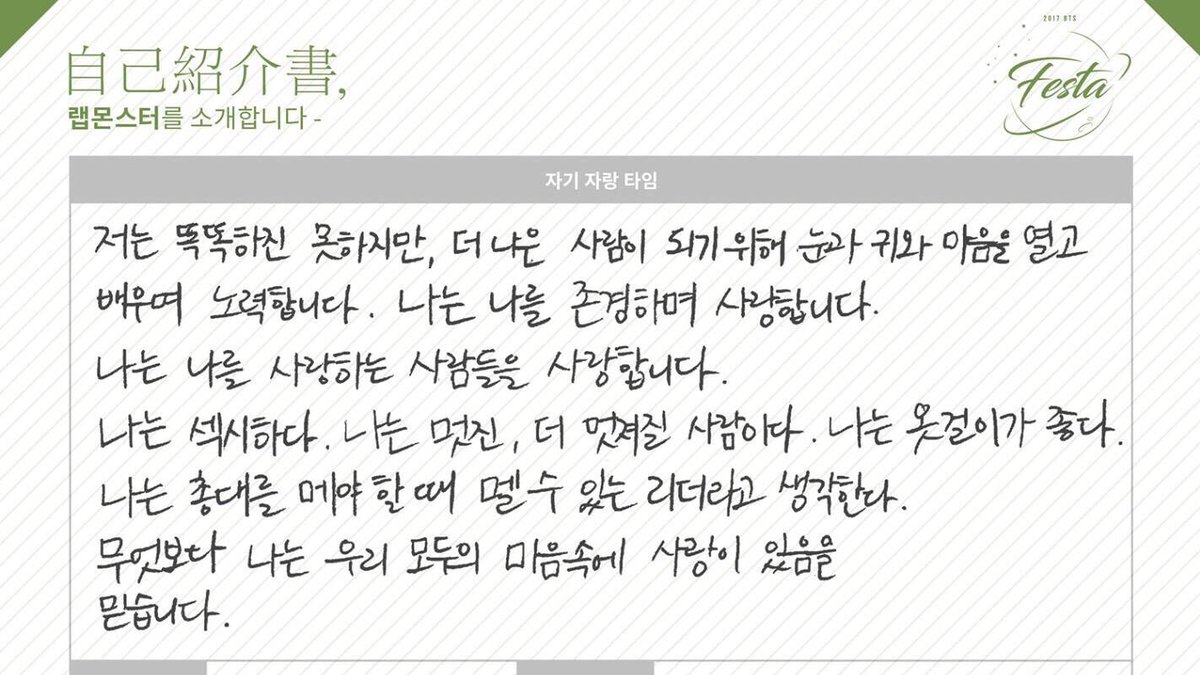 2017 BTS
Festa
自己紹介書,
랩몬스터를 소개합니다 -
자기 자랑 타임
저는 똑똑하진 못하지만, 더 나은 사람이 되기 위해 눈과 귀와 마음을 열고
배우며 노력합니다. 나는 나를 존경하며 사랑합니다.
나는 나를 사랑하는 사람들을 사랑합니다.
나는 섹시하다. 나는 멋진, 더 멋져질 사람이다. 나는 옷걸이가 좋다.
나는 총대를 메야 할 때 멜 수 있는 리더라고 생각한다.
무엇보다 나는 우리 모두의 마음속에 사랑이 있음을
믿습니다.